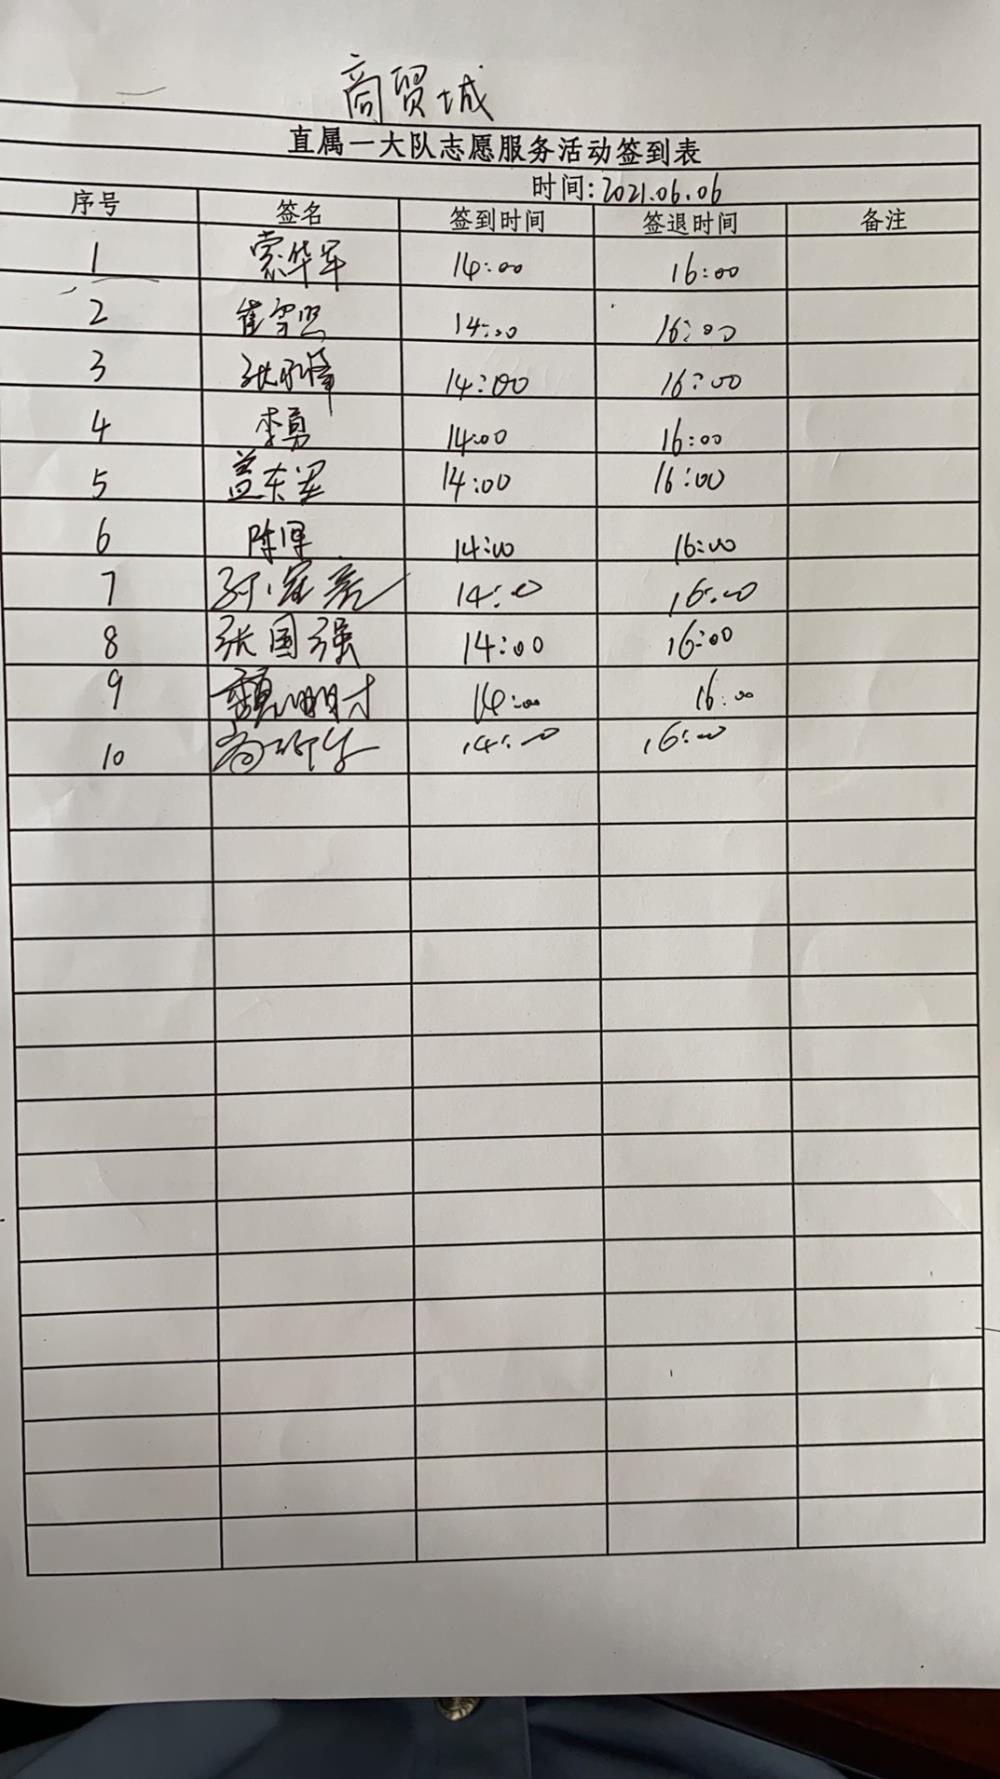 商贸城
直属一大队志愿服务活动签到表
时间:2021.06.06
序号 签名 签到时间 签退时间 备注
1 索华军 14:00 16:00
2 崔 14:00 16:00
3 14:00 16:00
4 李勇 14:00 16:00
5 盖东军 14:00 16:00
6 陈军 14:00 16:00
7 14:00 16:00
8 张国强 14:00 16:00
9 魏明才 14:00 16:00
10 14:00 16:00